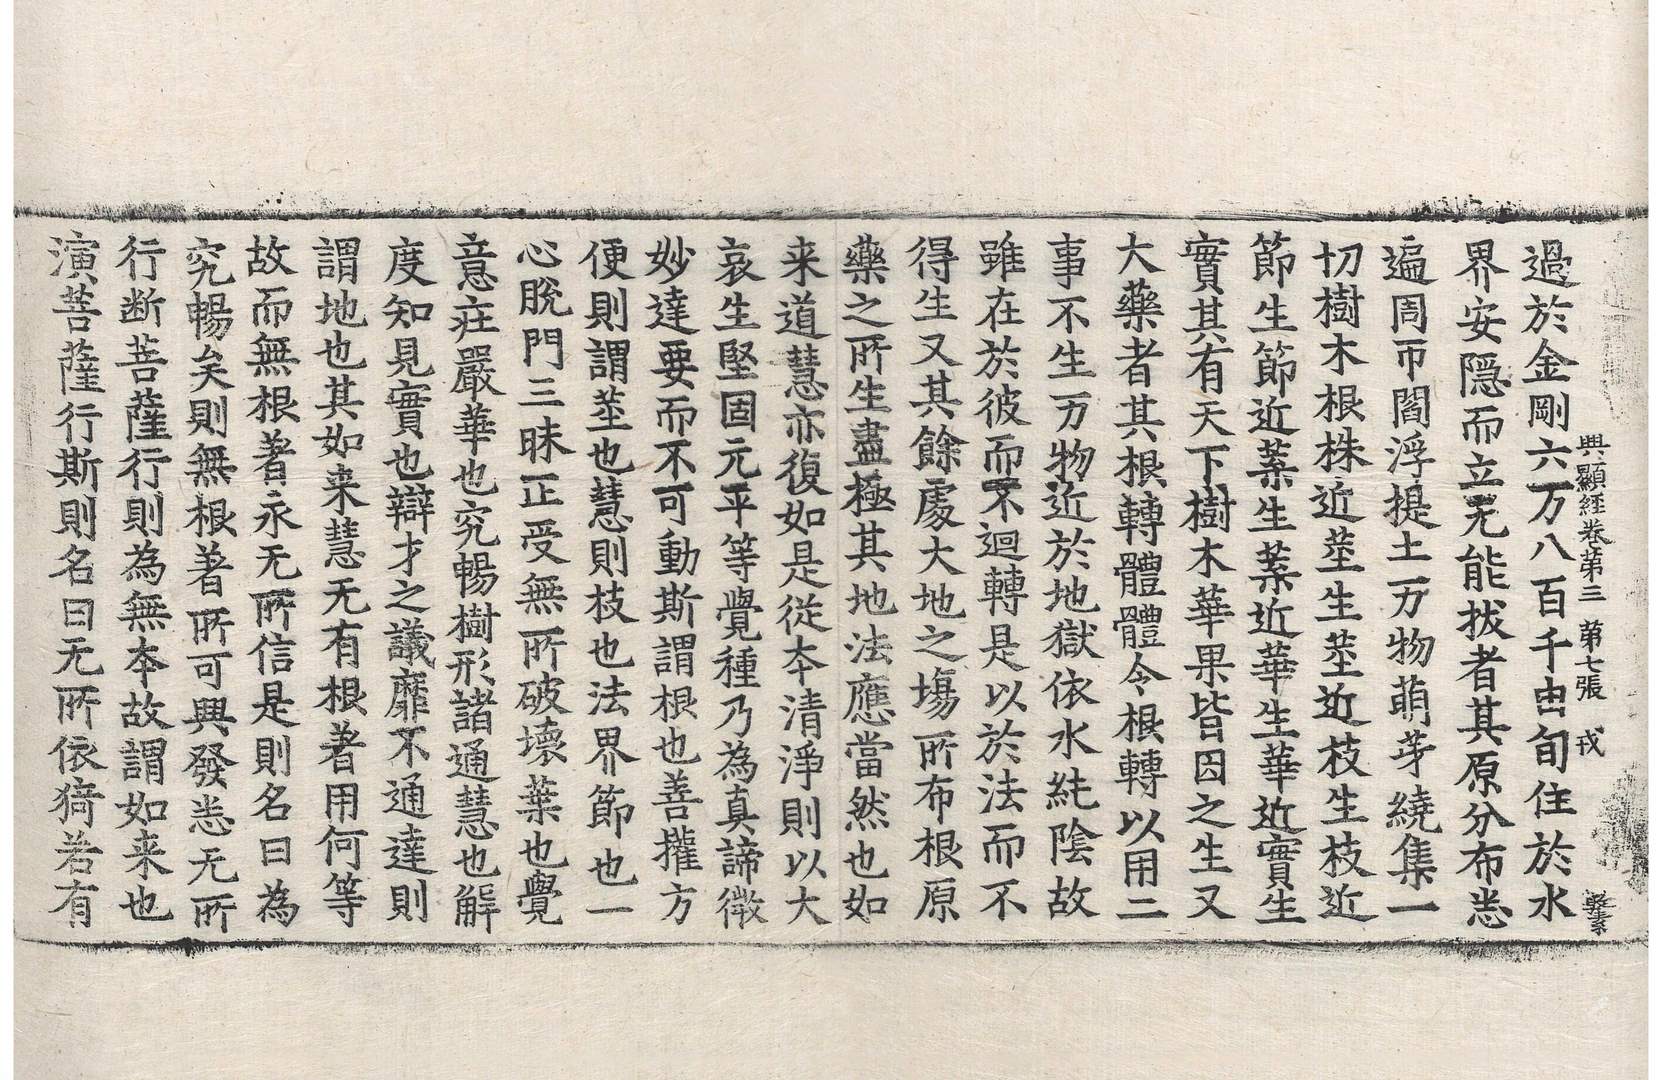 興顯經卷第三　第七張　戎
過於金剛六万八百千由旬住於水
界安隱而立无能拔者其原分布悉
遍周帀閻浮提土万物萌芽繞集一
切樹木根株近莖生莖近枝生枝近
節生節近葉生葉近華生華近實生
實其有天下樹木華果皆因之生又
大藥者其根轉體體令根轉以用二
事不生万物近於地獄依水純陰故
雖在於彼而不迴轉是以於法而不
得生又其餘處大地之塲所布根原
藥之所生盡極其地法應當然也如
来道慧亦復如是從夲清淨則以大
哀生堅固元平等覺種乃為真諦微
妙達要而不可動斯謂根也善權方
便則謂莖也慧則枝也法界節也一
心脫門三昧正受無所破壞葉也覺
意莊嚴華也究暢樹形諸通慧也解
度知見實也辯才之議靡不通達則
謂地也其如来慧无有根著用何等
故而無根著永无所信是則名曰為
究暢矣則無根著所可興發悉无所
行断菩薩行則為無夲故謂如来也
演菩薩行斯則名曰无所依猗若有